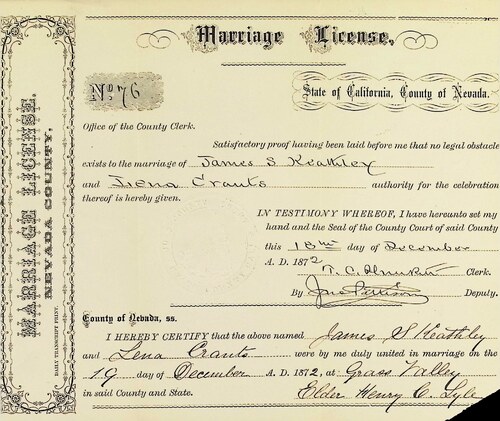 Marriage License,
No 76
State of California, County of Nevada.
Office of the County Clerk.
Satisfactory proof having been laid before me that no legal obstacle
exists to the marriage of James S Keathley
and Lena Crants authority for the celebration
thereof is hereby given.
IN TESTIMONY WHEREOF, I have hereunto set my
hand and the Seal of the County Court of said County
this 18th day of December
A. D. 1872
T. C. Clerk.
By Deputy.
County of Nevada, ss.
I HEREBY CERTIFY that the above named James S Keathley
and Lena Crants were by me duly united in marriage on the
19 day of December A. D. 1872, at Grass Valley
in said County and State. Elder Henry C. Lyle
MARRIAGE LICENSE.
NEVADA COUNTY.
DAILY TRANSCRIPT PRINT.